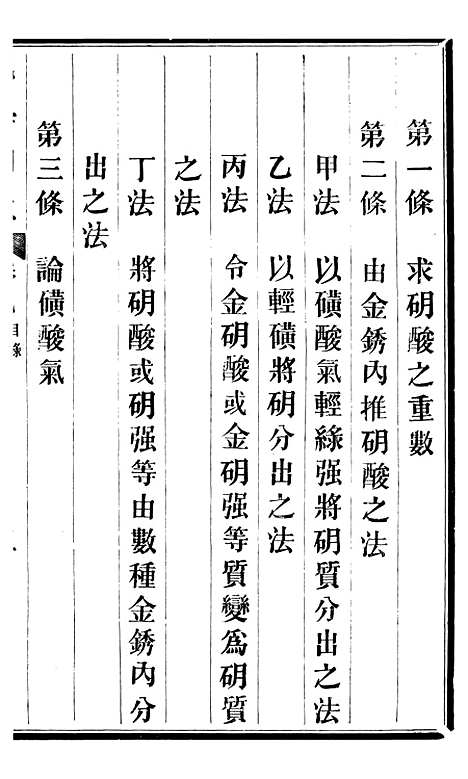 第一條 求酸之重數
第二條 由金銹內推酸之法
甲法 以磺酸氣輕綠强將質分出之法
乙法 以輕磺將分出之法
丙法 令金酸或金强等質變爲質
之法
丁法 將酸或强等由數種金銹內分
出之法
第三條 論磺酸氣
目錄